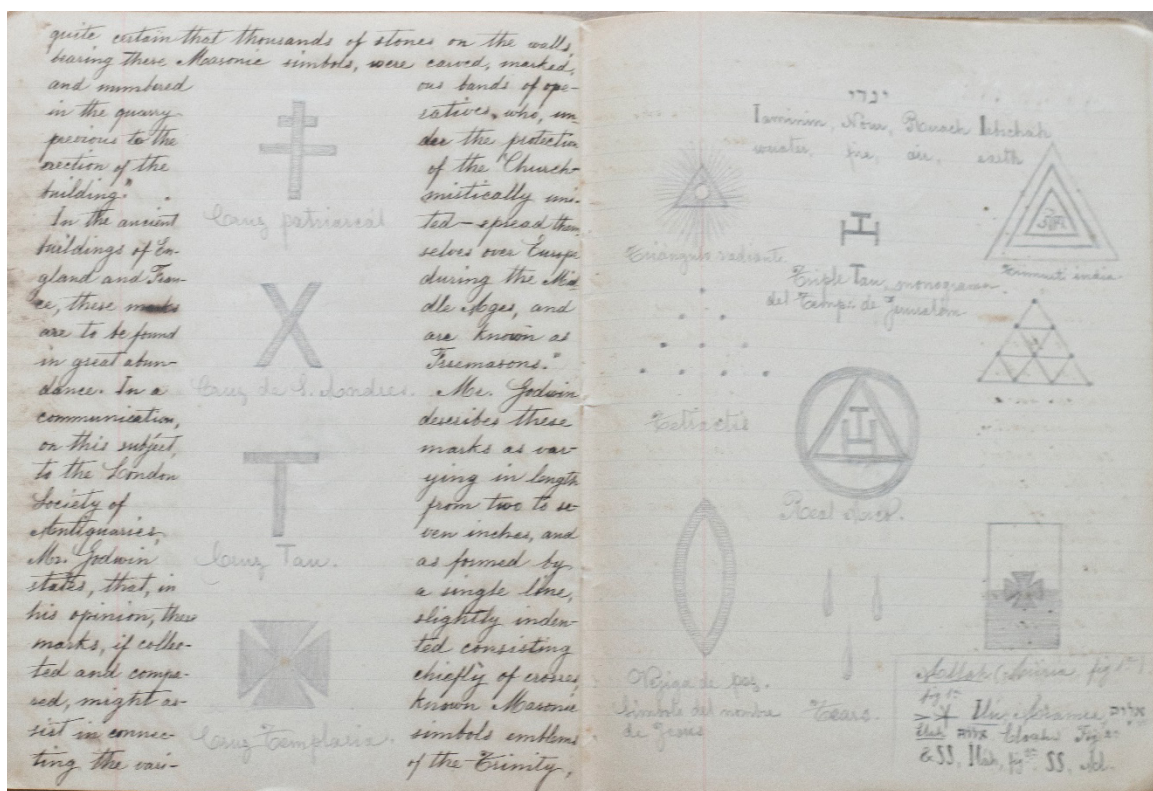 quite certain that thousands of stones on the walls,
bearing these Masonic simbols, were carved, marked,
and numbered
in the quarry
previous to the
erection of the
building."
In the ancient
buildings of En-
gland and Fran-
ce, these marks
are to be found
in great abun-
dance. In a
communication,
on this subject,
to the London
Society of
Antiquaries,
Mr. Godwin
states, that, in
his opinion, these
marks, if collec-
ted and compa-
red, might as-
sist in connec-
ting the vari-
Cruz patriarcal
Cruz de S. Andres.
Cruz Tau.
Cruz Templaria.
ous bands of ope-
ratives, who, un-
der the protection
of the Church-
mistically uni-
ted—spread them
selves over Europe
during the Mid
dle Ages, and
are known as
Freemasons."
Mr. Godwin
describes these
marks as var-
ying in length
from two to se-
ven inches, and
as formed by
a single line,
slightly inden-
ted consisting
chiefly of crosses,
known Masonic
simbols emblems
of the Trinity,
ינרי
Iaminim, Nour, Ruach Iebschah
water, fire, air, earth
Triángulo radiante.
Triple Tau, monograma
del Temp∴ de Jerusalem.
Trimurti india
Tetractis
Real Arco.
Vejiga de pez.
Simbolo del nombre
de Jesus
Tears.
Allah (Asiria fig 1ª)
fig 1ª
Ilu, Aramea, אלוה
Eloah אלוה Eloahi Fig 2ª
& SS, Ilah, fig 3ª SS,